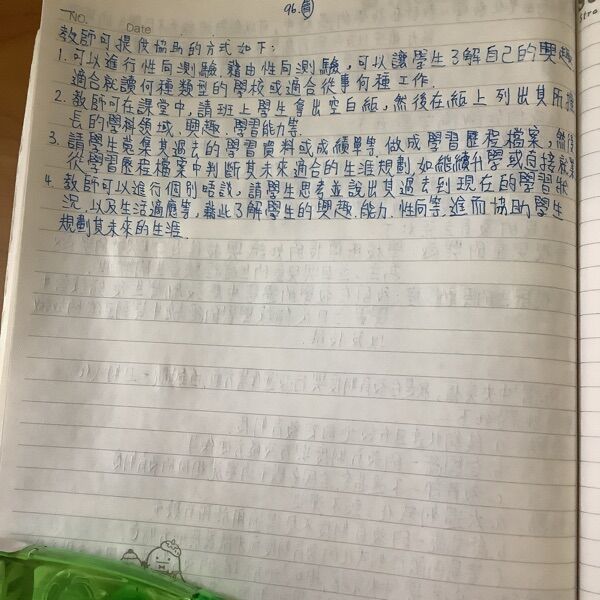 NO.
Date
96.
教師可提供協助的方式如下:
1. 可以進行性向測驗.藉由性向測驗,可以讓學生了解自己的興趣
適合就讀何種類型的學校或適合從事何種工作
2. 教師可在課堂中,請班上學生拿出空白紙,然後在紙上列出其所擅
長的學科領域、興趣.學習能力等.
3. 請學生蒐集其過去的學習資料或成績單等.做成學習歷程檔案,然後
從學習歷程檔案中判斷其未來適合的生涯規劃,如繼續升學或直接就業
4. 教師可以進行個別晤談,請學生思考並說出其過去到現在的學習狀
況,以及生活適應等,藉此了解學生的興趣.能力.性向等.進而協助學生
規劃其未來的生涯.